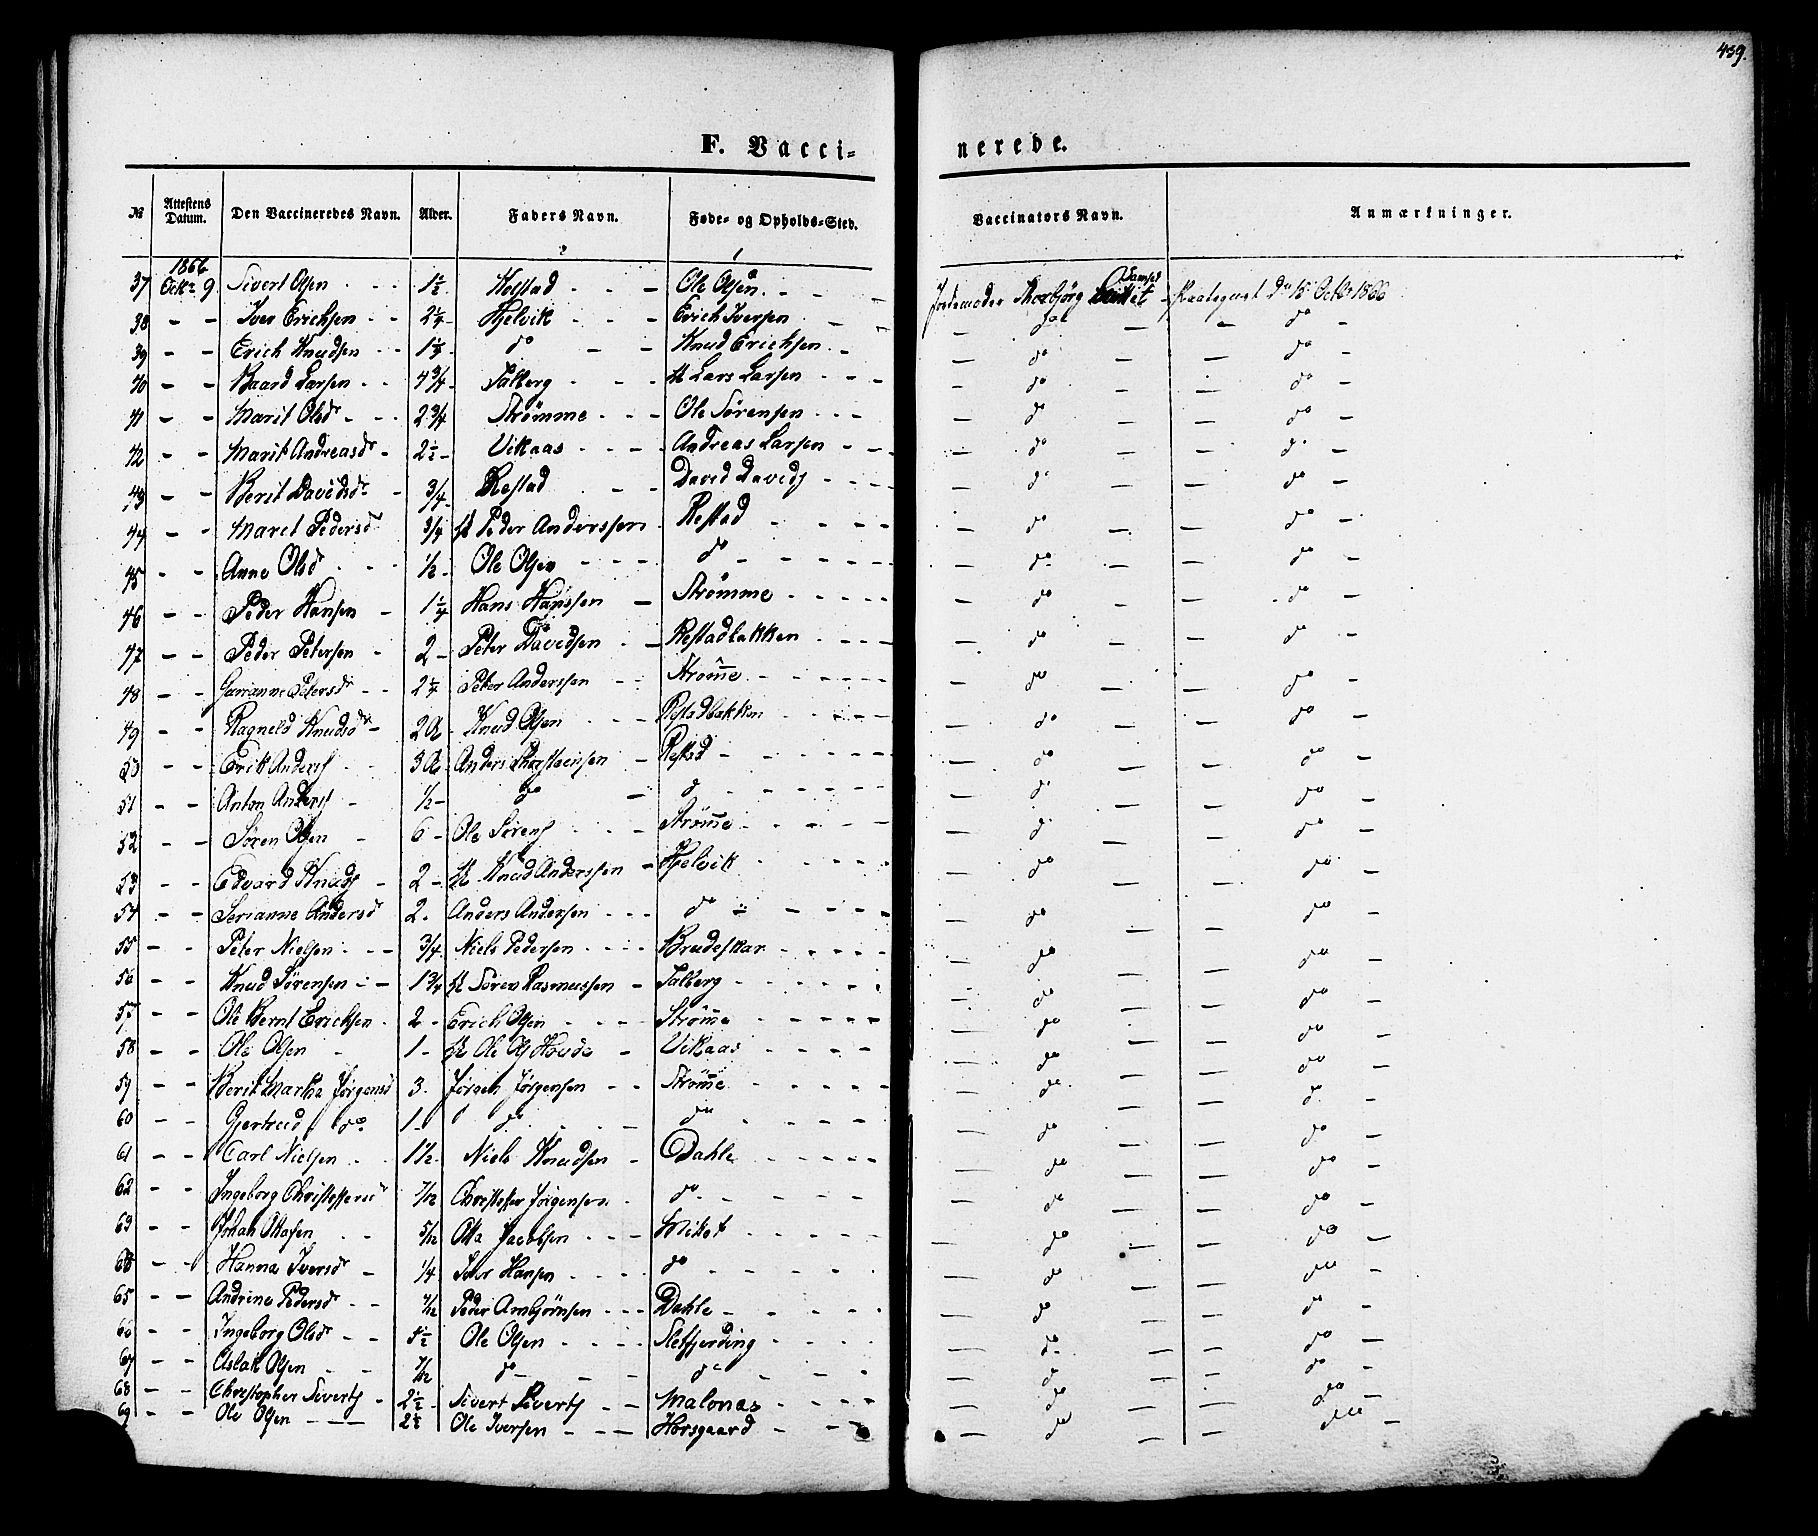 439.
F. Vacci- nerede.
№ Attestens Datum. Den Vaccineredes Navn. Alder. Faders Navn. Føde- og Opholds-Sted. Vaccinators Navn. Anmærkninger.
1866
37 Octr 9. Sivert Olsen - - - 1½ Holstad - - - Ole Olsen - - - Jordemoder Thorbjørg
38 - - Iver Erichsen - - 2¼ Hjelvik - - - Erich Iversen - - do - - do -
39 - - Erich Knudsen - - 1 do - - Knud Erichsen - - do - - do -
40 - - Baard Larsen - - 4¾ Talberg - - - Lars Larsen - - - do - - do -
41 - - Marit Olsdr - - 2¾ Strømme - - - Ole Sørensen - - - do - - do -
42 - - Marit Andreasdr - 2½ - Vikaas - - - Andreas Larsen - - do - - do -
43 - - Berit Davidsdr - 3/4 - Restad - - David Davids - - - do - - do -
44 - - Maret Pedersd 3/4 Peder Anderssen Restad - - - - do - - do -
45 - - Anne Olsd - - - 1/2 - Ole Olsen - - - do - - - - do - - do -
46 - - Peder Hansen - 1¼ Hans Hanssen - Strømme - - - - do - - do -
47 - - Peder Petersen - 2 - Peter Davidsen - - Restadbakken - - - do - - do -
48 - - Petersdr - - 2¼ - Peter Anderssen - - Strøme - - - - do - - do -
49 - - Ragneld Knudsdr - 2 Knud Olsen - - - Restadbakken - - - do - - do -
50 - - Erik Anders - - 3 Anders Thorsteinsen - Restad - - - - do - - do -
51 - - Anton Anders - 1/2 - do - d - - - - do - - do -
52 - - Søren Olsen - 6 - Ole Sørens - - - Strøme - - - - do - - do -
53 - - Edvard Knuds - 2 - Knud Anderssen - Hjelvik - - - - do - - do -
54 - - Serianne Andersd 2. Anders Andersen - - - do - - - - do - - do -
55 - - Peter Nielsen - - - 3/4 - Niels Pedersen - - - Brudeskar - - - - do - - do -
56 - - Knud Sørensen - - 1¾ Søren Rasmussen - Talberg - - - - do - - do -
57 - - Ole Bernt Erichsen - 2 - Erich Olsen - - - Strøme - - - - do - - do -
58 - - Ole Olsen - 1 - Ole Ols - Vikaas - - - - do - - do -
59 - - Berit Martha Jørgensd 3. Jørgen Jørgensen - - Strøme - - - - do - - do -
60 - - Gjertrud do 1 - do - - do - - - - do - - do -
61 - - Carl Nielsen - - 1½ - Niels Knudsen - Dahle - - - - do - - do -
62 - - Ingeborg Christoffersd 7/12 Christoffer Jørgensen - do - - - - do - - do -
63 - - Johan - - 5/12 Jacobsen - - - - - - - do - - do -
64 - - Hanna Iversdr - 1/4 Iver Hansen - - - do - - - - do - - do -
65 - - Andrine Pedersdr - - 7/12 Peder Arnbjørnsen - - - Dahle - - - - do - - do -
66 - - Ingeborg Olsdr - - Ole Olsen - - - Sletfjerding - - - - do - - do -
67 - - Aslak Olsen - - 7/12 do - - - do - - - - do - - do -
68 - - Christopher Siverts - 2½ - Sivert Siverts - - Malonas - - - do - - do -
69 - - Ole Olsen - - - 2½ Ole Iversen - - - Horsgaard - - do - - do -